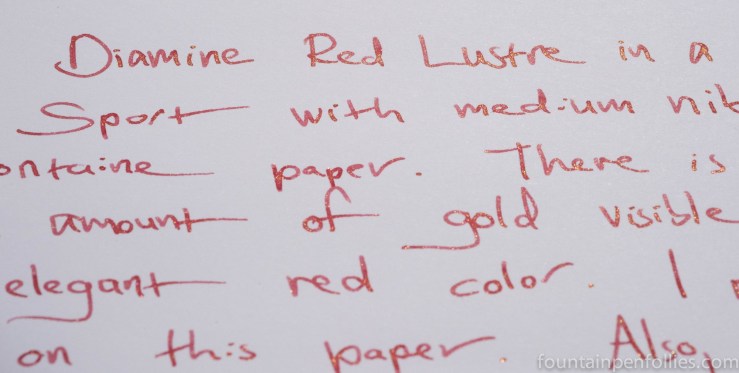 Diamine Red Lustre in a
Sport with medium nib
ontaine paper. There is
amount of gold visible
elegant red color. I
on this paper. Also,
fountainpenfollies.com